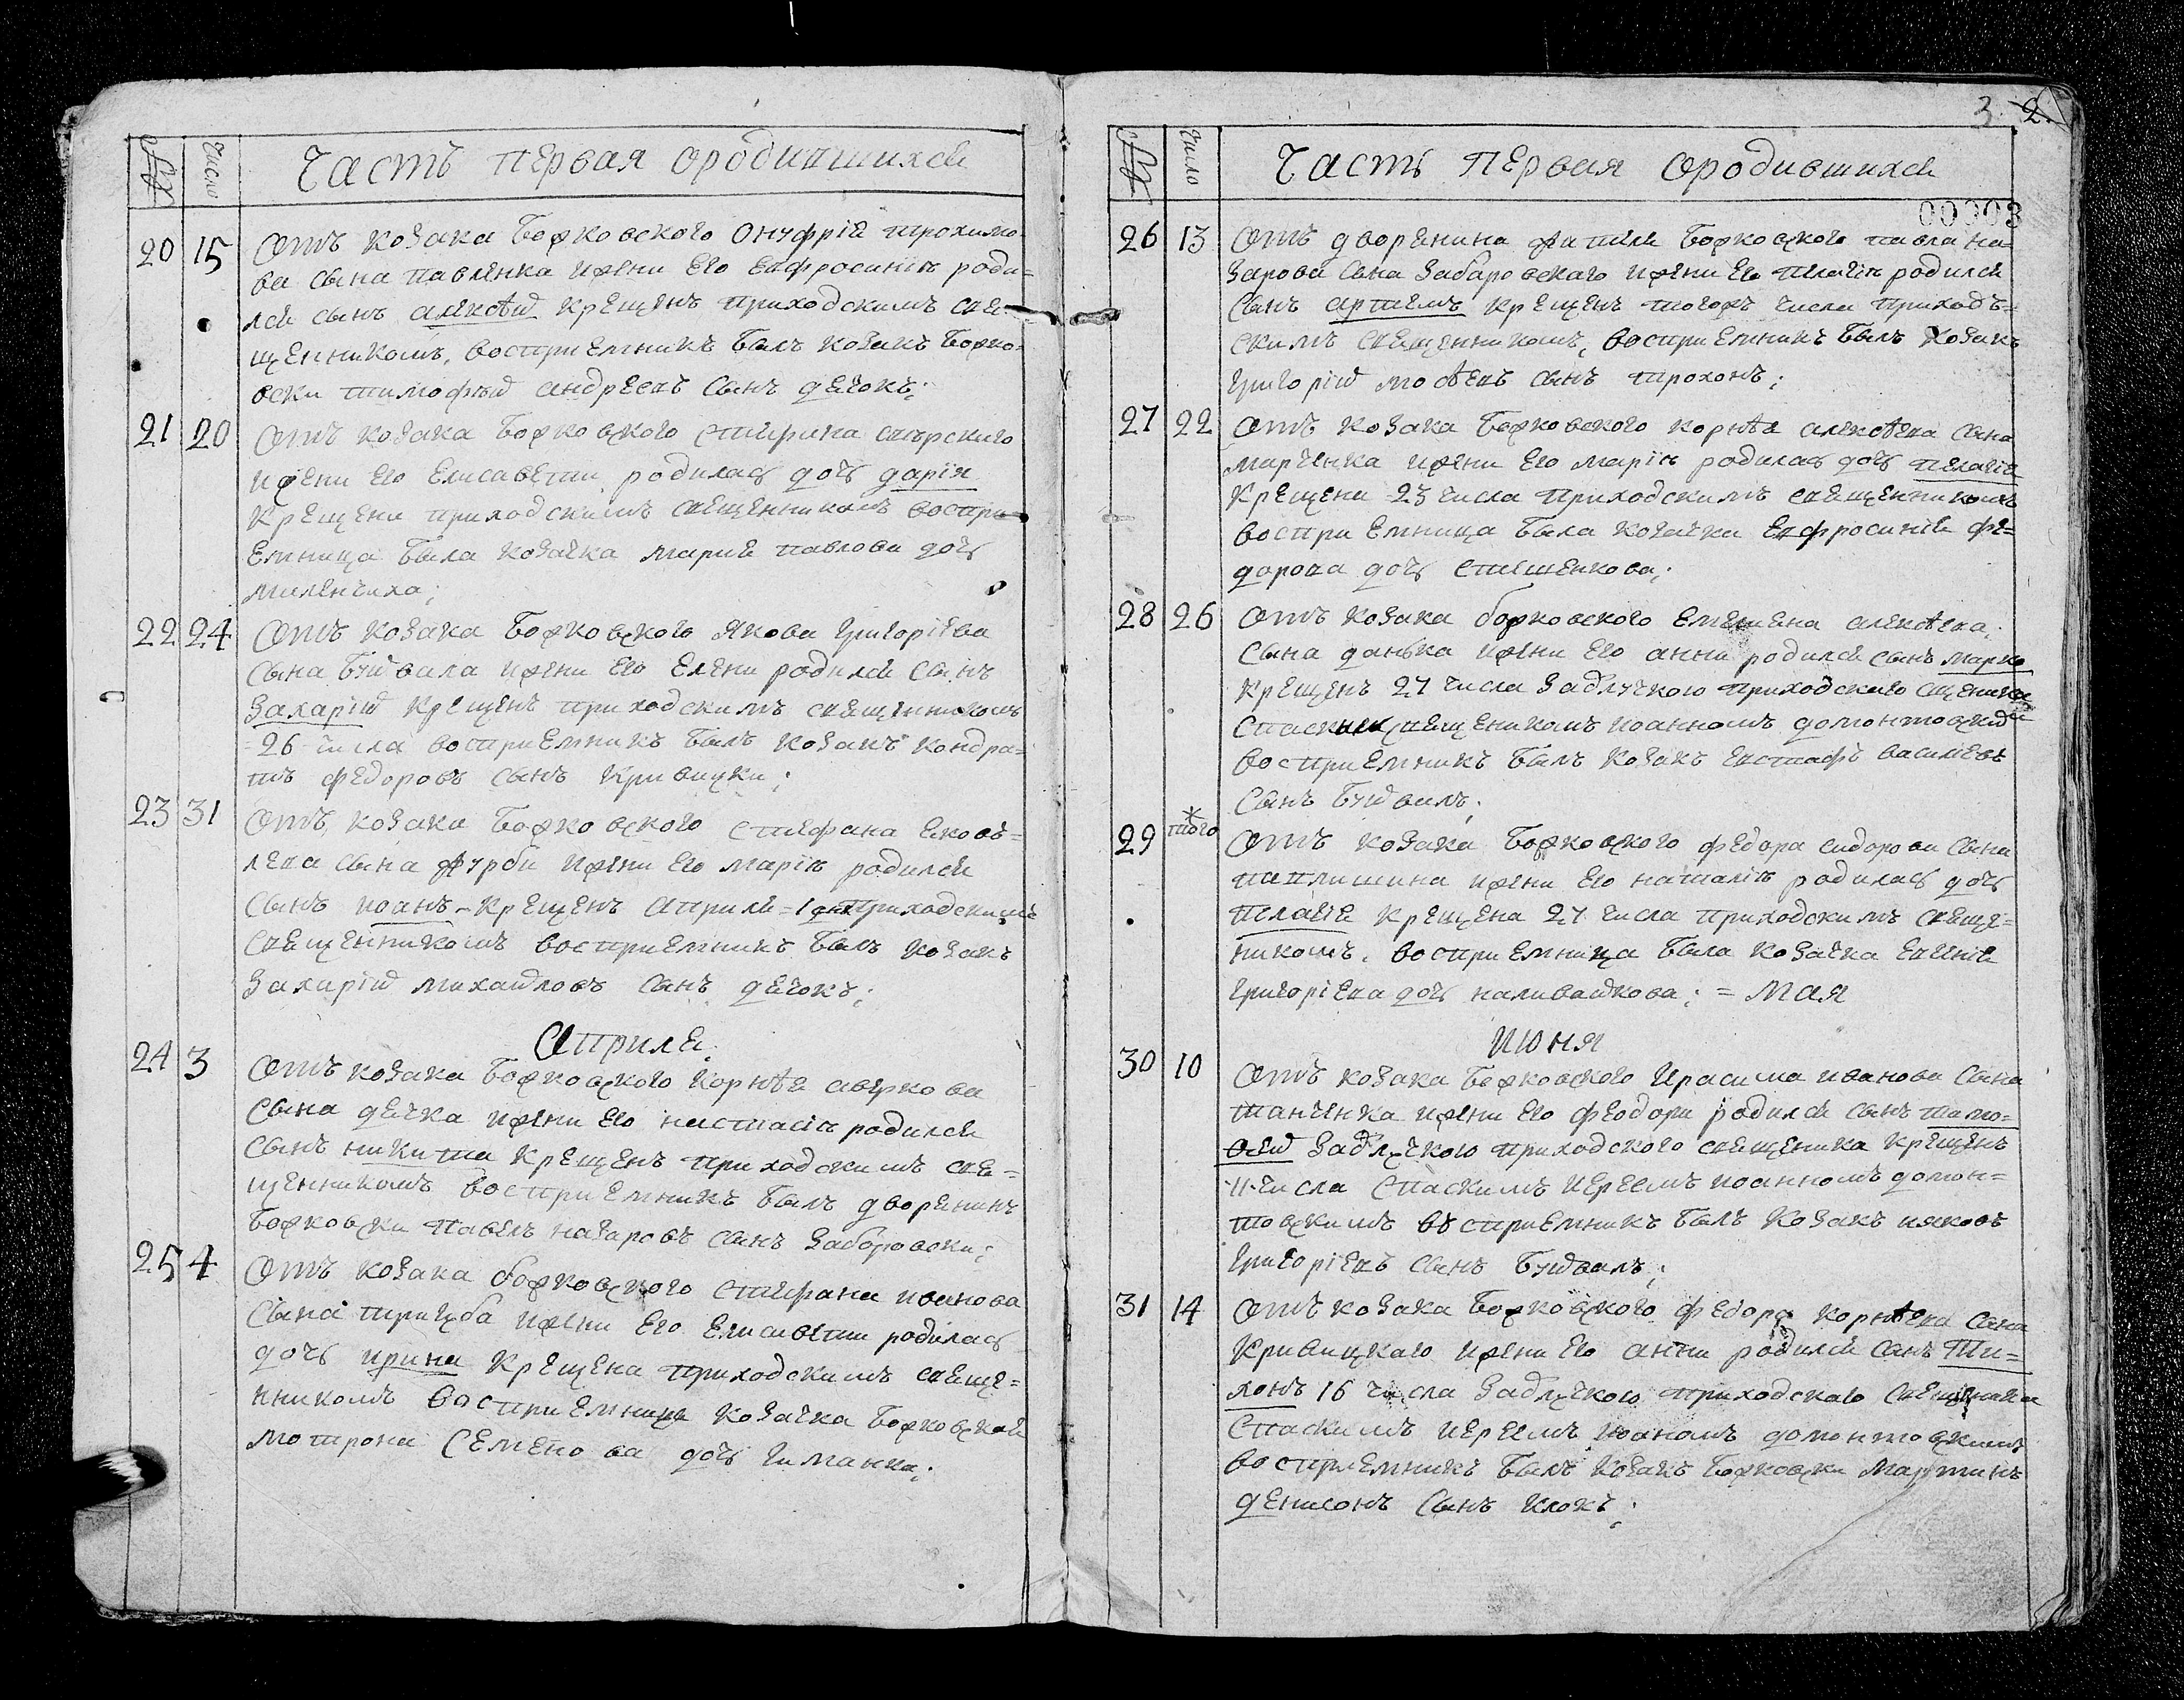 Часть первая ородившихся
число
20 15 Отъ козака Боржовского Онуфрія трохимо
ва сына павленка ижены Его евфросиніи роди=
лся сынъ алексѣй крещенъ приходскимъ свя=
щенникомъ, восприемникъ былъ козакъ Боржо=
вски тимофѣй андреевъ сынъ дячокъ;
21 20 Отъ козака Боржовского стефана
ижени Его Елисавети родилась дочь дарія
крещена приходскимъ священникомъ воспри=
емница была козачка марія павлова дочь
22 24 Отъ козака Боржовского Якова григоріева
сына Буйвала ижени Его Елени родился сынъ
Захарій крещенъ приходскимъ священникомъ
=26= числа восприемникъ былъ козакъ кондра=
тъ федоровъ сынъ кривицки;
23 31 Отъ козака Боржовского стефана яковъ=
лева сына журби ижени Его маріи родился
сынъ иоанъ - крещенъ априля =1 дня приходскимъ
священникомъ восприемникъ былъ козакъ
Захарій михайловъ сынъ дячокъ;
Априля.
24 3 Отъ козака Боржовского корнѣя аверкова
сына дячка ижени Его настасіи родился
сынъ никита крещенъ приходскимъ свя=
щенникомъ восприемникъ былъ дворянинъ
Боржовски павелъ назаровъ сынъ Забаровски;
25 4 Отъ козака боржовского стефана иванова
сына ижени Его Елисавети родилась
дочь ирина крещена приходскимъ свяще=
нникомъ восприемница козачка Боржовская
мотрона Семенова дочь
3. 2.
Часть первая ородившихся
число
00003
26 13 Отъ дворянина жителя Боржовского павла на=
зарова сына Забаровскаго ижени Его пелагіи родился
сынъ артемъ крещенъ тогожъ числа приходъ=
скимъ священникомъ, восприемникъ былъ козакъ
григорій мосѣевъ сынъ трохонъ;
27 22 Отъ козака Боржовского корнѣя алексѣева сына
марченка ижени Его маріи родилась дочь пелагія
крещена 23 числа приходскимъ священникомъ
восприемница была козачка Евфросинія фе=
дорова дочь стешенкова;
28 26 Отъ козака боржовского Емеляна алексѣева.
сына данька ижени Его анни родился сынъ марко
крещенъ 27 числа приходскаго
священикомъ иоанномъ домонтовски
восприемникъ былъ козакъ евстафъ василевъ
сынъ Буйвалъ;
29 * того Отъ козака Боржовского федора сидорова сына
ижени Его наталіи родилась дочь
пелагія крещена 27 числа приходскимъ свяще=
никомъ. восприемница была козачка Евгенія
григоріева дочь наливайкова; = мая
июня
30 10 Отъ козака Боржовского герасима иванова сына
танченка ижени Его феодори родился сынъ тимо=
ѳей приходского священика крещенъ
11 числа спаскимъ иереемъ иоанномъ домон=
товскимъ въсприемникъ былъ козакъ ияковъ
григоріевъ сынъ Буйвалъ;
31 14 Отъ козака Боржовского федора корнѣева сына
кривицкаго ижени Его анни родился сынъ Ти=
хонъ 16 числа приходскаго священика
спаскимъ иереемъ иоаномъ домонтовскимъ
восприемникъ былъ козакъ Боржовски мартинъ
денисовъ сынъ клокъ;